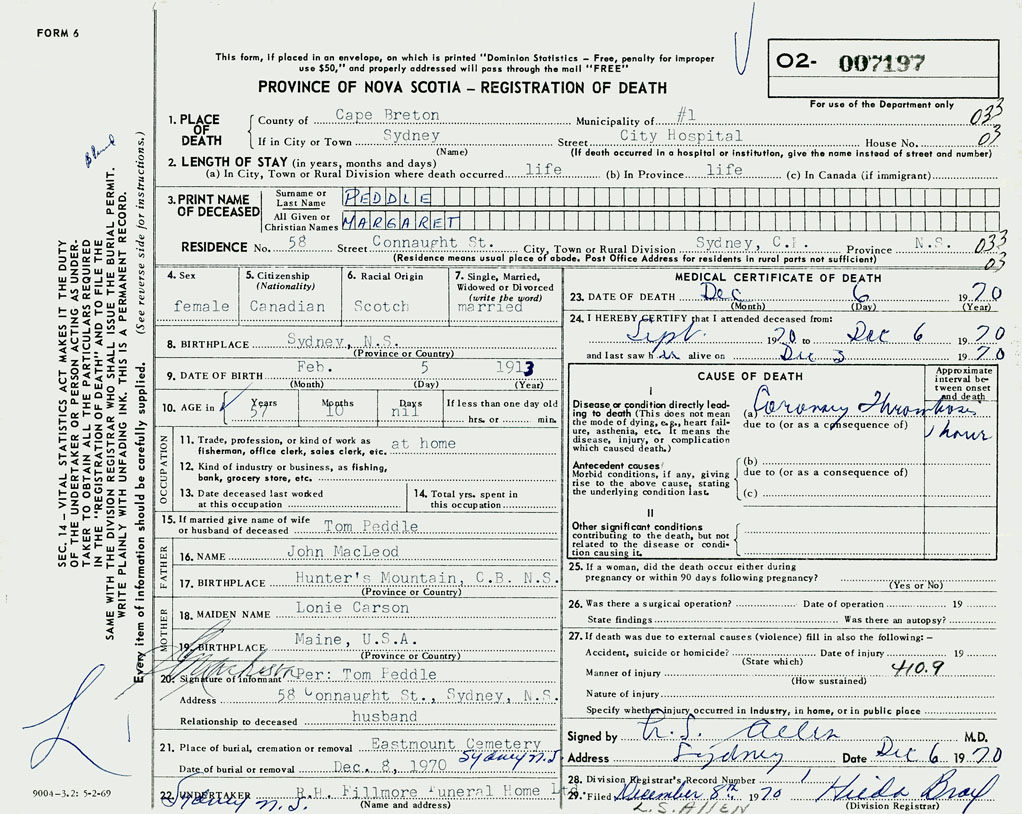 FORM 6
This form, if placed in an envelope, on which is printed "Dominion Statistics – Free, penalty for improper
use $50," and properly addressed will pass through the mail "FREE"
O2- 007197
PROVINCE OF NOVA SCOTIA – REGISTRATION OF DEATH
For use of the Department only
1. PLACE OF DEATH
County of Cape Breton Municipality of #1 033
If in City or Town Sydney Street City Hospital House No. 03
(Name) (If death occurred in a hospital or institution, give the name instead of street and number)
2. LENGTH OF STAY (in years, months and days)
(a) In City, Town or Rural Division where death occurred life (b) In Province life (c) In Canada (if immigrant)
3. PRINT NAME OF DECEASED
Surname or Last Name PEDDLE
All Given or Christian Names MARGARET
RESIDENCE No. 58 Street Connaught St. City, Town or Rural Division Sydney, C.B. Province N.S. 033
(Residence means usual place of abode. Post Office Address for residents in rural parts not sufficient) 03
4. Sex
female
5. Citizenship
(Nationality)
Canadian
6. Racial Origin
Scotch
7. Single, Married,
Widowed or Divorced
(write the word)
married
8. BIRTHPLACE Sydney, N.S.
(Province or Country)
9. DATE OF BIRTH Feb. 5 1913
(Month) (Day) (Year)
10. AGE in Years Months Days If less than one day old
57 10 nil hrs. or min.
OCCUPATION
11. Trade, profession, or kind of work as
fisherman, office clerk, sales clerk, etc. at home
12. Kind of industry or business, as fishing,
bank, grocery store, etc.
13. Date deceased last worked
at this occupation
14. Total yrs. spent in
this occupation
15. If married give name of wife
or husband of deceased Tom Peddle
FATHER
16. NAME John MacLeod
17. BIRTHPLACE Hunter's Mountain, C.B. N.S.
(Province or Country)
MOTHER
18. MAIDEN NAME Lonie Carson
19. BIRTHPLACE Maine, U.S.A.
(Province or Country)
20. Signature of informant Per: Tom Peddle
Address 58 Connaught St., Sydney, N.S.
Relationship to deceased husband
21. Place of burial, cremation or removal Eastmount Cemetery
Sydney N.S.
Date of burial or removal Dec. 8, 1970
22. UNDERTAKER R.H. Fillmore Funeral Home Ltd.
Sydney N.S. (Name and address)
MEDICAL CERTIFICATE OF DEATH
23. DATE OF DEATH Dec 6 1970
(Month) (Day) (Year)
24. I HEREBY CERTIFY that I attended deceased from:
Sept 1970 to Dec 6 1970
and last saw her alive on Dec 3 1970
CAUSE OF DEATH
Approximate
interval be-
tween onset
and death
I
Disease or condition directly lead-
ing to death (This does not mean
the mode of dying, e.g., heart fail-
ure, asthenia, etc. It means the
disease, injury, or complication
which caused death.)
(a) Coronary Thrombosis
due to (or as a consequence of)
1 hour
Antecedent causes
Morbid conditions, if any, giving
rise to the above cause, stating
the underlying condition last.
(b)
due to (or as a consequence of)
(c)
II
Other significant conditions
contributing to the death, but not
related to the disease or condi-
tion causing it.
25. If a woman, did the death occur either during
pregnancy or within 90 days following pregnancy?
(Yes or No)
26. Was there a surgical operation? Date of operation 19
State findings Was there an autopsy?
27. If death was due to external causes (violence) fill in also the following: –
Accident, suicide or homicide? Date of injury 19
(State which)
Manner of injury 410.9
(How sustained)
Nature of injury
Specify whether injury occurred in industry, in home, or in public place
Signed by L.S. Allen M.D.
Address Sydney Date Dec 6 1970
28. Division Registrar's Record Number 1
29. Filed December 8th 1970
L.S. ALLEN (Division Registrar)
SEC. 14 – VITAL STATISTICS ACT MAKES IT THE DUTY
OF THE UNDERTAKER OR PERSON ACTING AS UNDER-
TAKER TO OBTAIN ALL THE PARTICULARS REQUIRED
IN THE "REGISTRATION OF DEATH" AND TO FILE THE
SAME WITH THE DIVISION REGISTRAR WHO SHALL ISSUE THE BURIAL PERMIT.
WRITE PLAINLY WITH UNFADING INK. THIS IS A PERMANENT RECORD.
Every item of information should be carefully supplied. (See reverse side for instructions.)
9004-3.2: 5-2-69